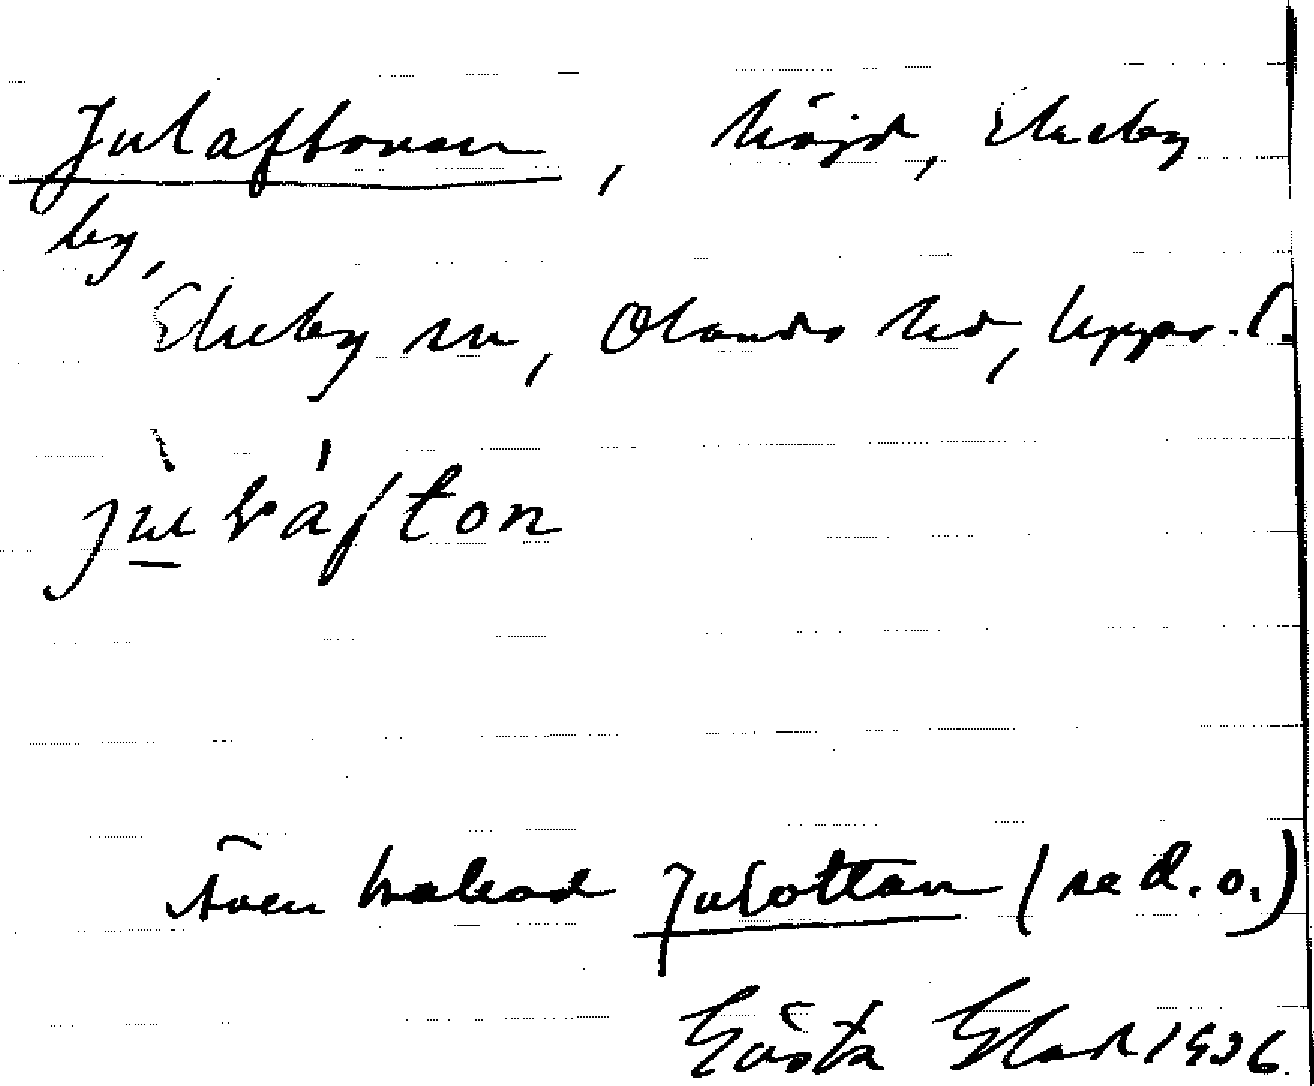 Julaftonen, höjd, Ekeby
by,
Ekeby sn, Olands hd, Upps. l.
jùlkáfton
Även kallad Julottan (se d. o.)
Gösta 1936.